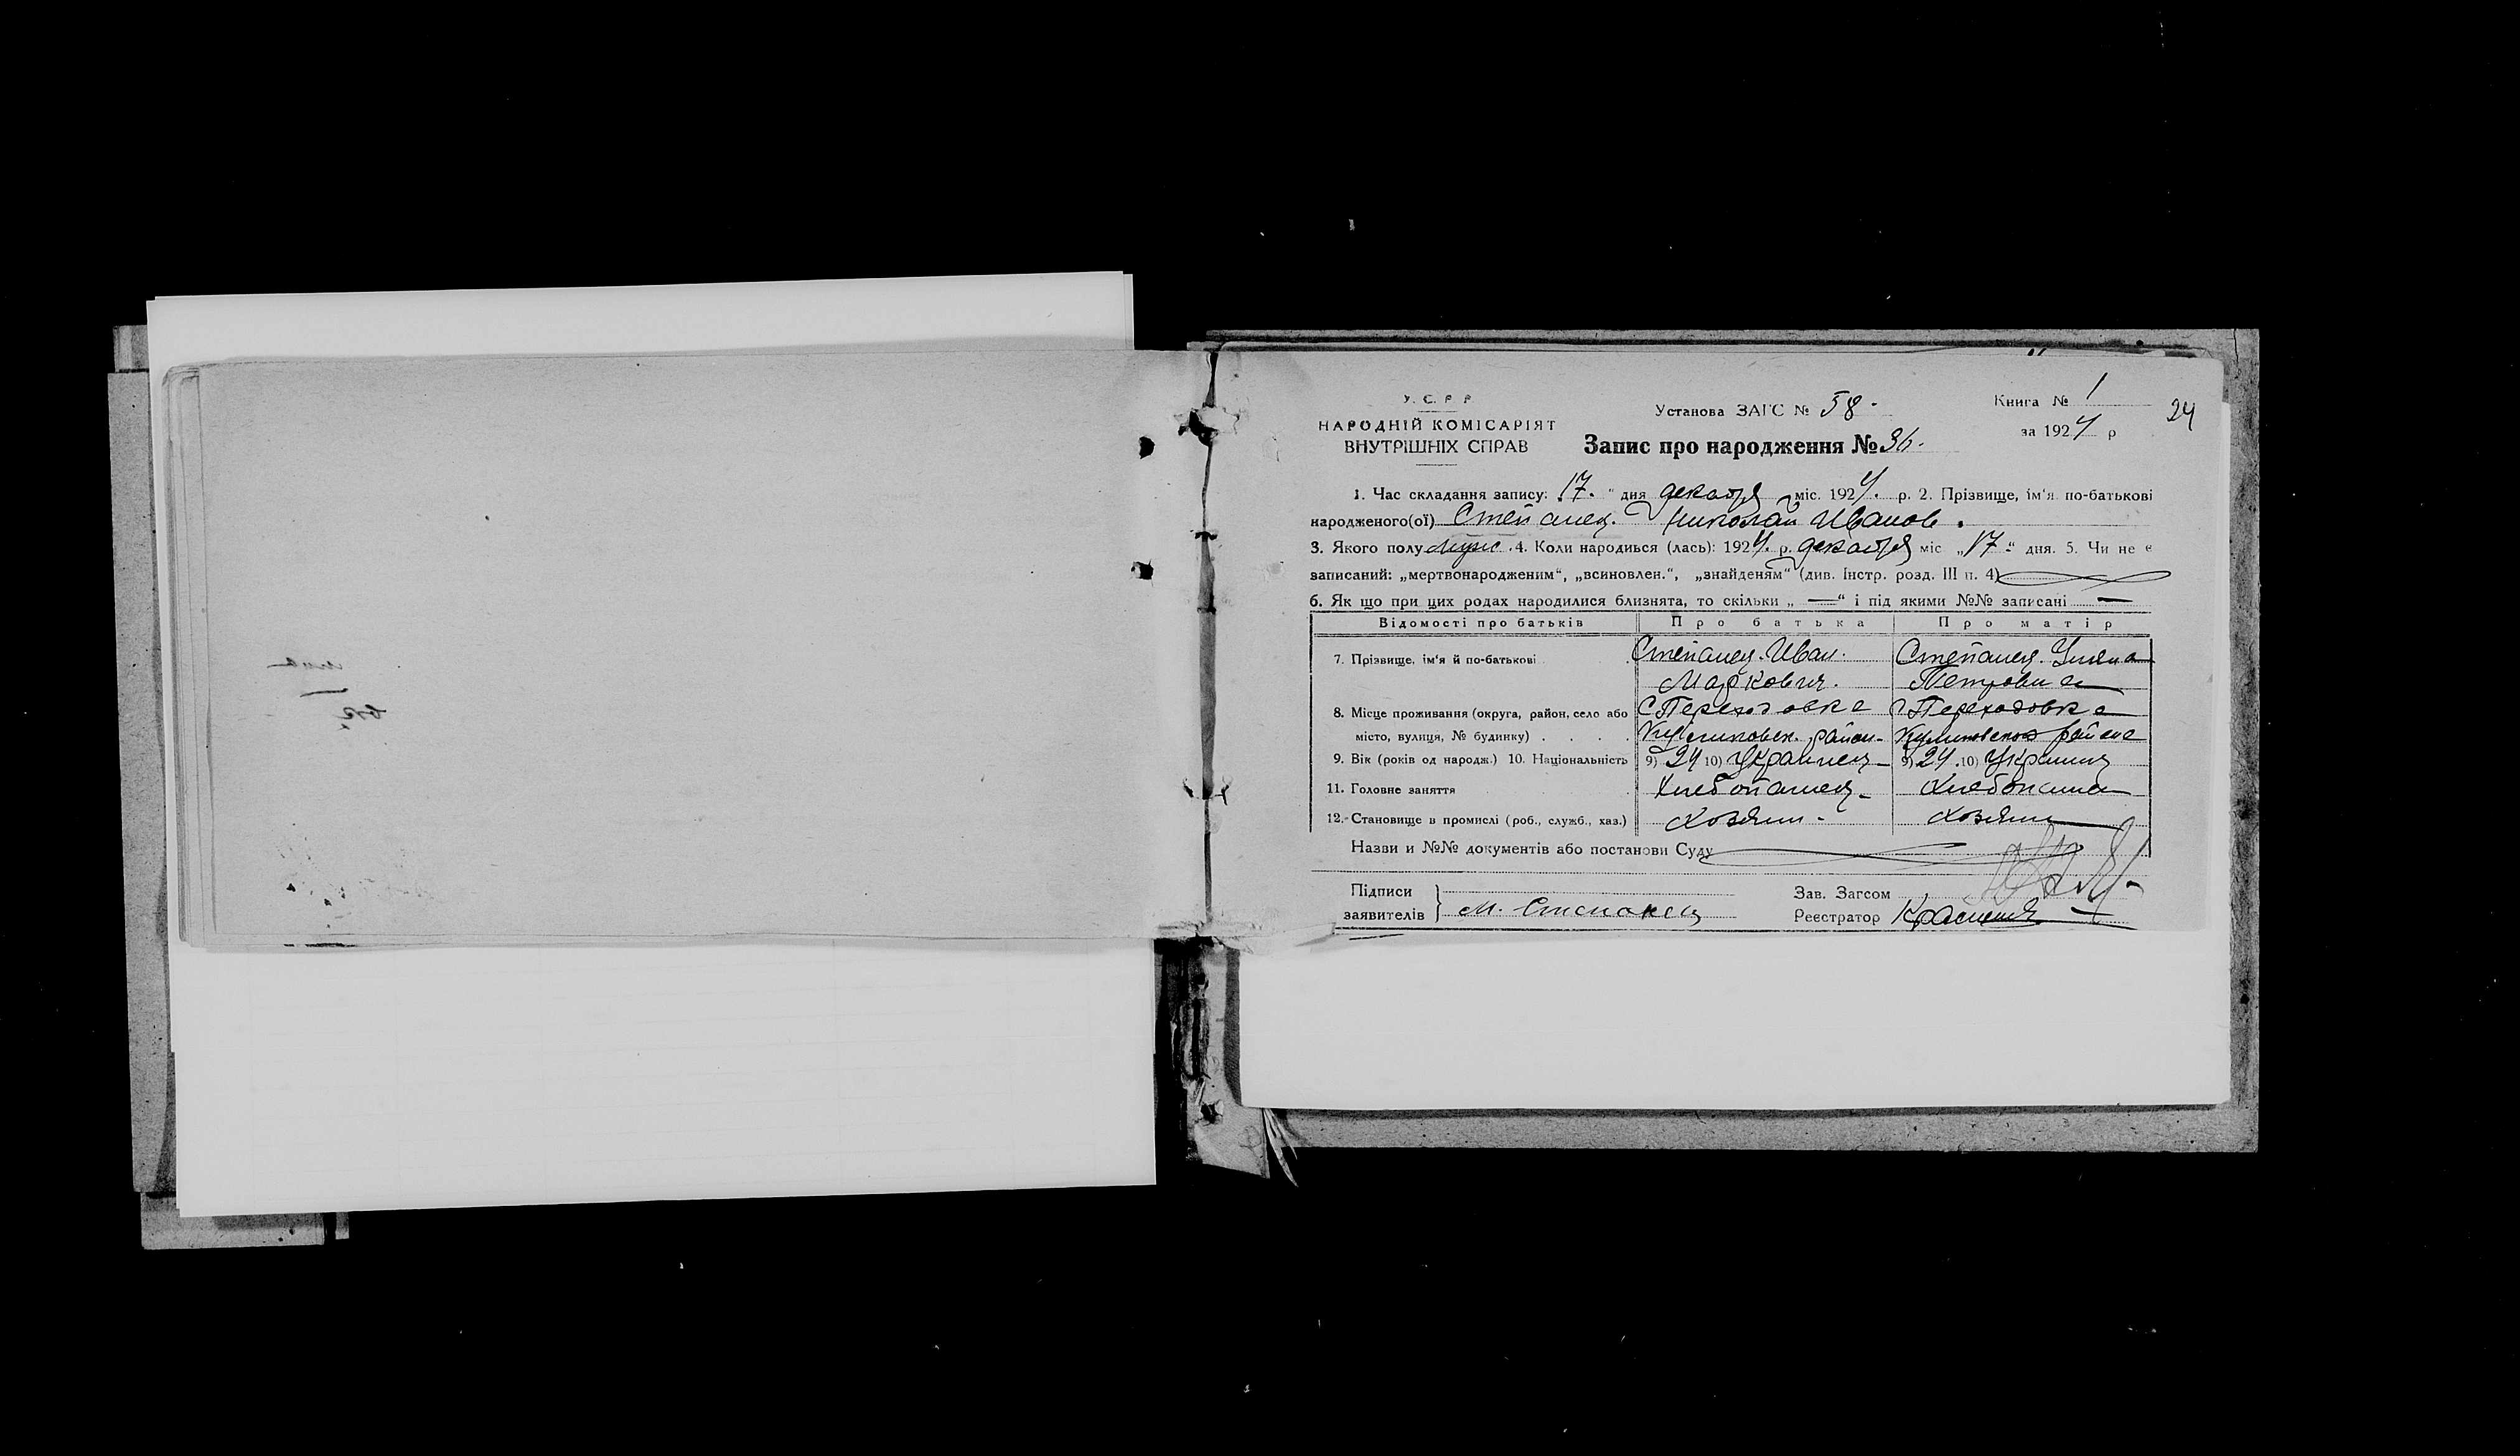 У. С. Р. Р.
НАРОДНІЙ КОМІСАРІЯТ
ВНУТРІШНІХ СПРАВ
Установа ЗАГС № 58.
Запис про народження № 36.
Книга № 1
за 1924 р
24
1. Час складання запису: 17. " дня декабря міс. 1924. р. 2. Прізвище, ім'я по-батькові
народженого(ої) Степанец. Николай Иванов.
3. Якого полу муж. 4. Коли народився (лась): 1924. р. декабря міс „17" дня. 5. Чи не є
записаний: „мертвонародженим", „всиновлен.", „знайденям" (див. Інстр. розд. III п. 4)
6. Як що при цих родах народилися близнята, то скільки „ — " і під якими №№ записані —
Відомості про батьків Про батька Про матір
7. Прізвище, ім'я й по-батькові Степанец. Иван. Степанец. Уляна
Маркович. Петровна
8. Місце проживання (округа, район, село або С Переходовка С Переходовка
місто, вулиця, № будинку) . . . . Куликовск. район. Куликовского района
9. Вік (років од народж.) 10. Національність 9) 24 10) Украинец 9) 24. 10) Украинц
11. Головне заняття Хлебопашец Хлебопашец
12. Становище в промислі (роб., служб., хаз.) Хозяин. Хозяин
Назви и №№ документів або постанови Суду
Підписи
заявителів } М. Степанец
Зав. Загсом
Реєстратор